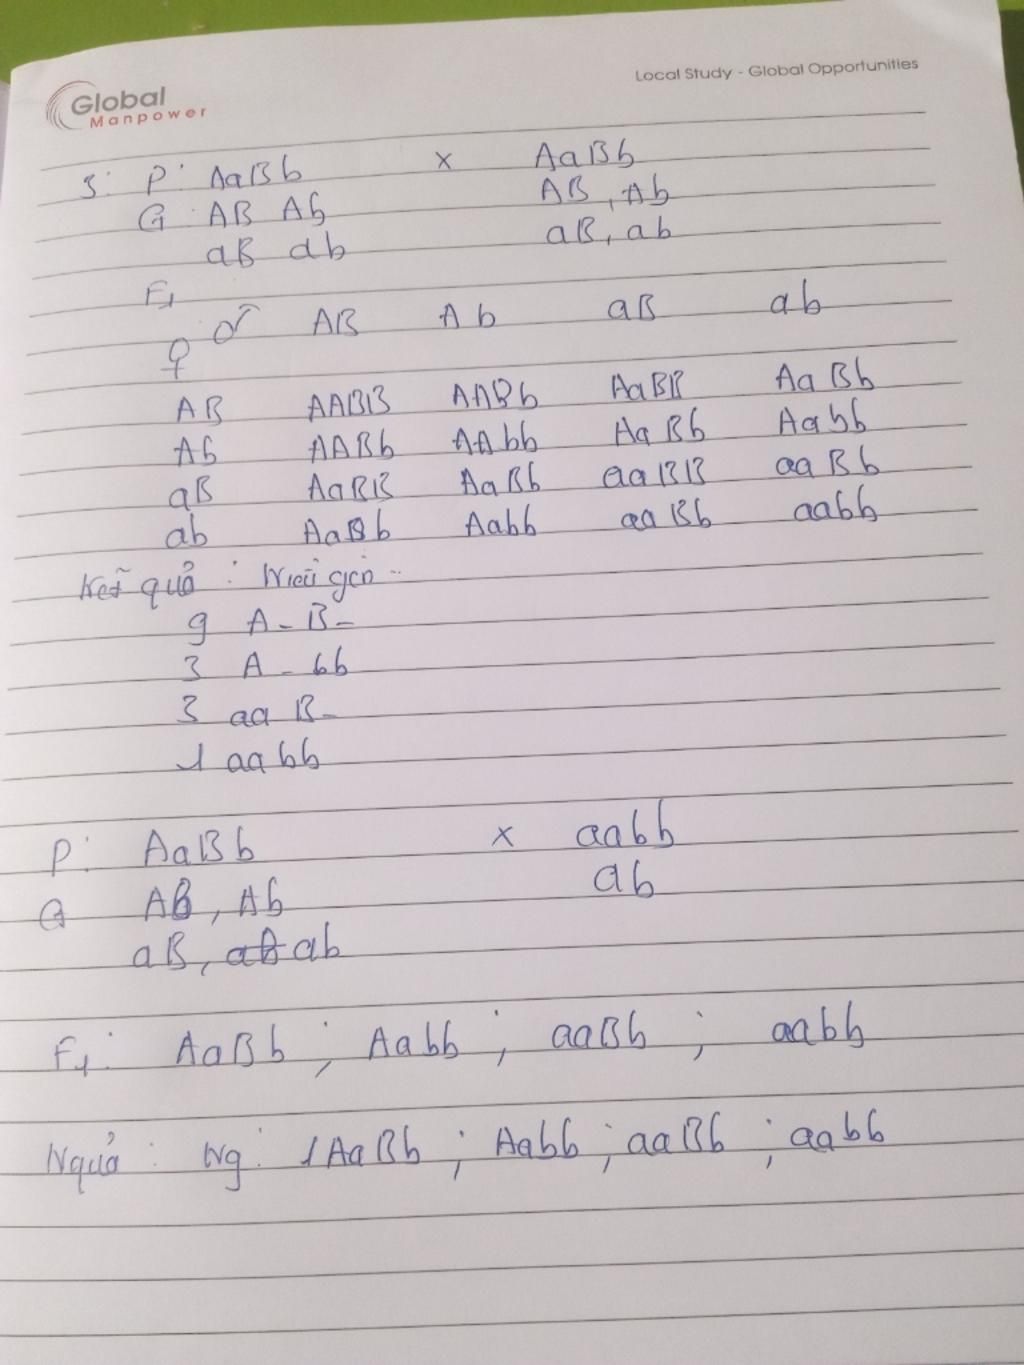 Local Study - Global Opportunities
Global
Manpower
3: P: AaBb x AaBb
G: AB Ab AB, Ab
aB ab aB, ab
F1
♂ AB Ab aB ab
♀
AB AABB AABb AaBB AaBb
Ab AABb AAbb AaBb Aabb
aB AaBB AaBb aaBB aaBb
ab AaBb Aabb aaBb aabb
Kết quả : Kiểu gen
9 A-B-
3 A-bb
3 aaB-
1 aabb
P: AaBb x aabb
G AB, Ab ab
aB, ab
F1: AaBb ; Aabb ; aaBb ; aabb
Kquả : Kg: 1AaBb ; Aabb ; aaBb ; aabb